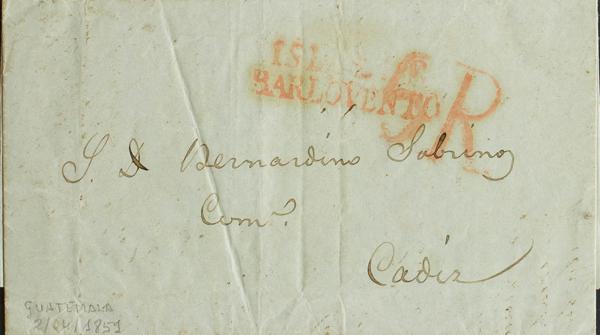 ISLAS DE
BARLOVENTO
5R
S. D Bernardino Sobrino
Com.^e
Cadiz
GUATEMALA
2/04/1851